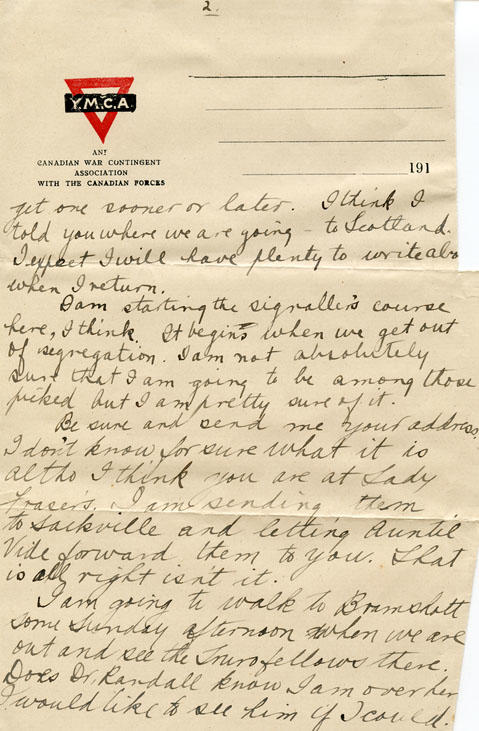 2.
Y.M.C.A.
AND
CANADIAN WAR CONTINGENT
ASSOCIATION
WITH THE CANADIAN FORCES
191
get one sooner or later. I think I
told you where we are going - to Scotland.
I expect I will have plenty to write abo
when I return.
I am starting the signaller's course
here, I think. It begins when we get out
of segregation. I am not absolutely
sure that I am going to be among those
picked but I am pretty sure of it.
Be sure and send me your address
I don't know for sure what it is
altho I think you are at Lady
Frasers. I am sending them
to Sackville and letting Auntie
Vide forward them to you. That
is all right isn't it.
I am going to walk to Bramshott
some Sunday afternoon when we are
out and see the Truro fellows there.
Does Dr. Randall know I am over her
I would like to see him if I could.